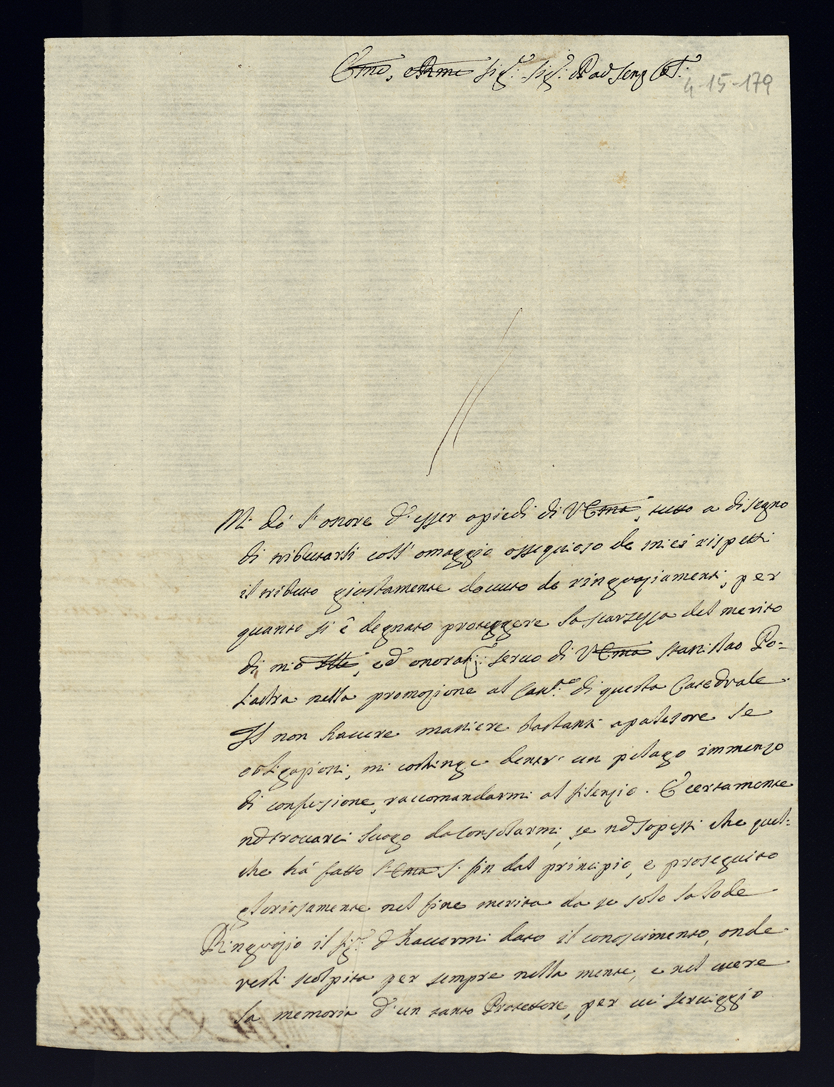 Emo, e Rmo Sig.r Sig.r Pad
4-15-179
Mi dò l'onore d'esser apiedi di V Ema, tutto a disegno
di tributarli coll'omaggio ossequioso de miei rispetti
il tributo giustamente douuto de ringraziamenti, per
quanto si è degnato proteggere la scarzezza del merito
di mio, ed seruo di V Ema Stanislao Po-
lastra nella promozione al Can.to di questa Catedrale.
Il non hauere maniere bastanti apalesare le
obligazioni, mi costringe dentr' un pelago immenzo
di confusione, raccomandarmi al silenzio. E certamente
nò trouarei luogo da consolarmi, se nò sapessi che quel-
che hà fatto l'Ema S. sin dal principio, e proseguito
gloriosamente nel fine merita da se solo la lode
Ringrazio il Sig.r d'hauermi dato il conoscimento, onde
resti scolpita per sempre nella mente, e nel cuore
la memoria d'un tanto Protettore, per cui seruiggio